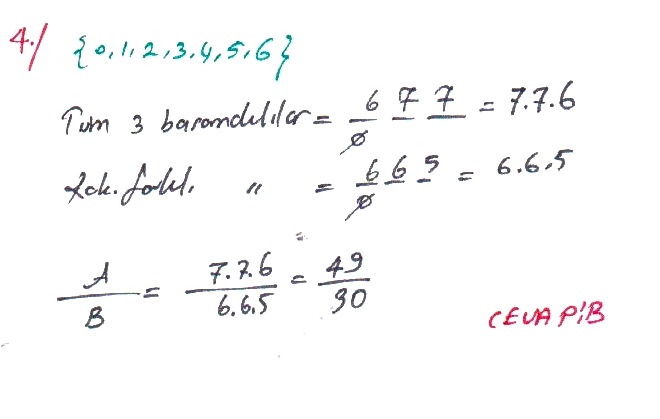 4./ {0,1,2,3,4,5,6}
Tüm 3 basamaklılar = 6 7 7 = 7.7.6
0
Rak. farklı " = 6 6 5 = 6.6.5
0
A/B = 7.7.6/6.6.5 = 49/30
CEVAP:B